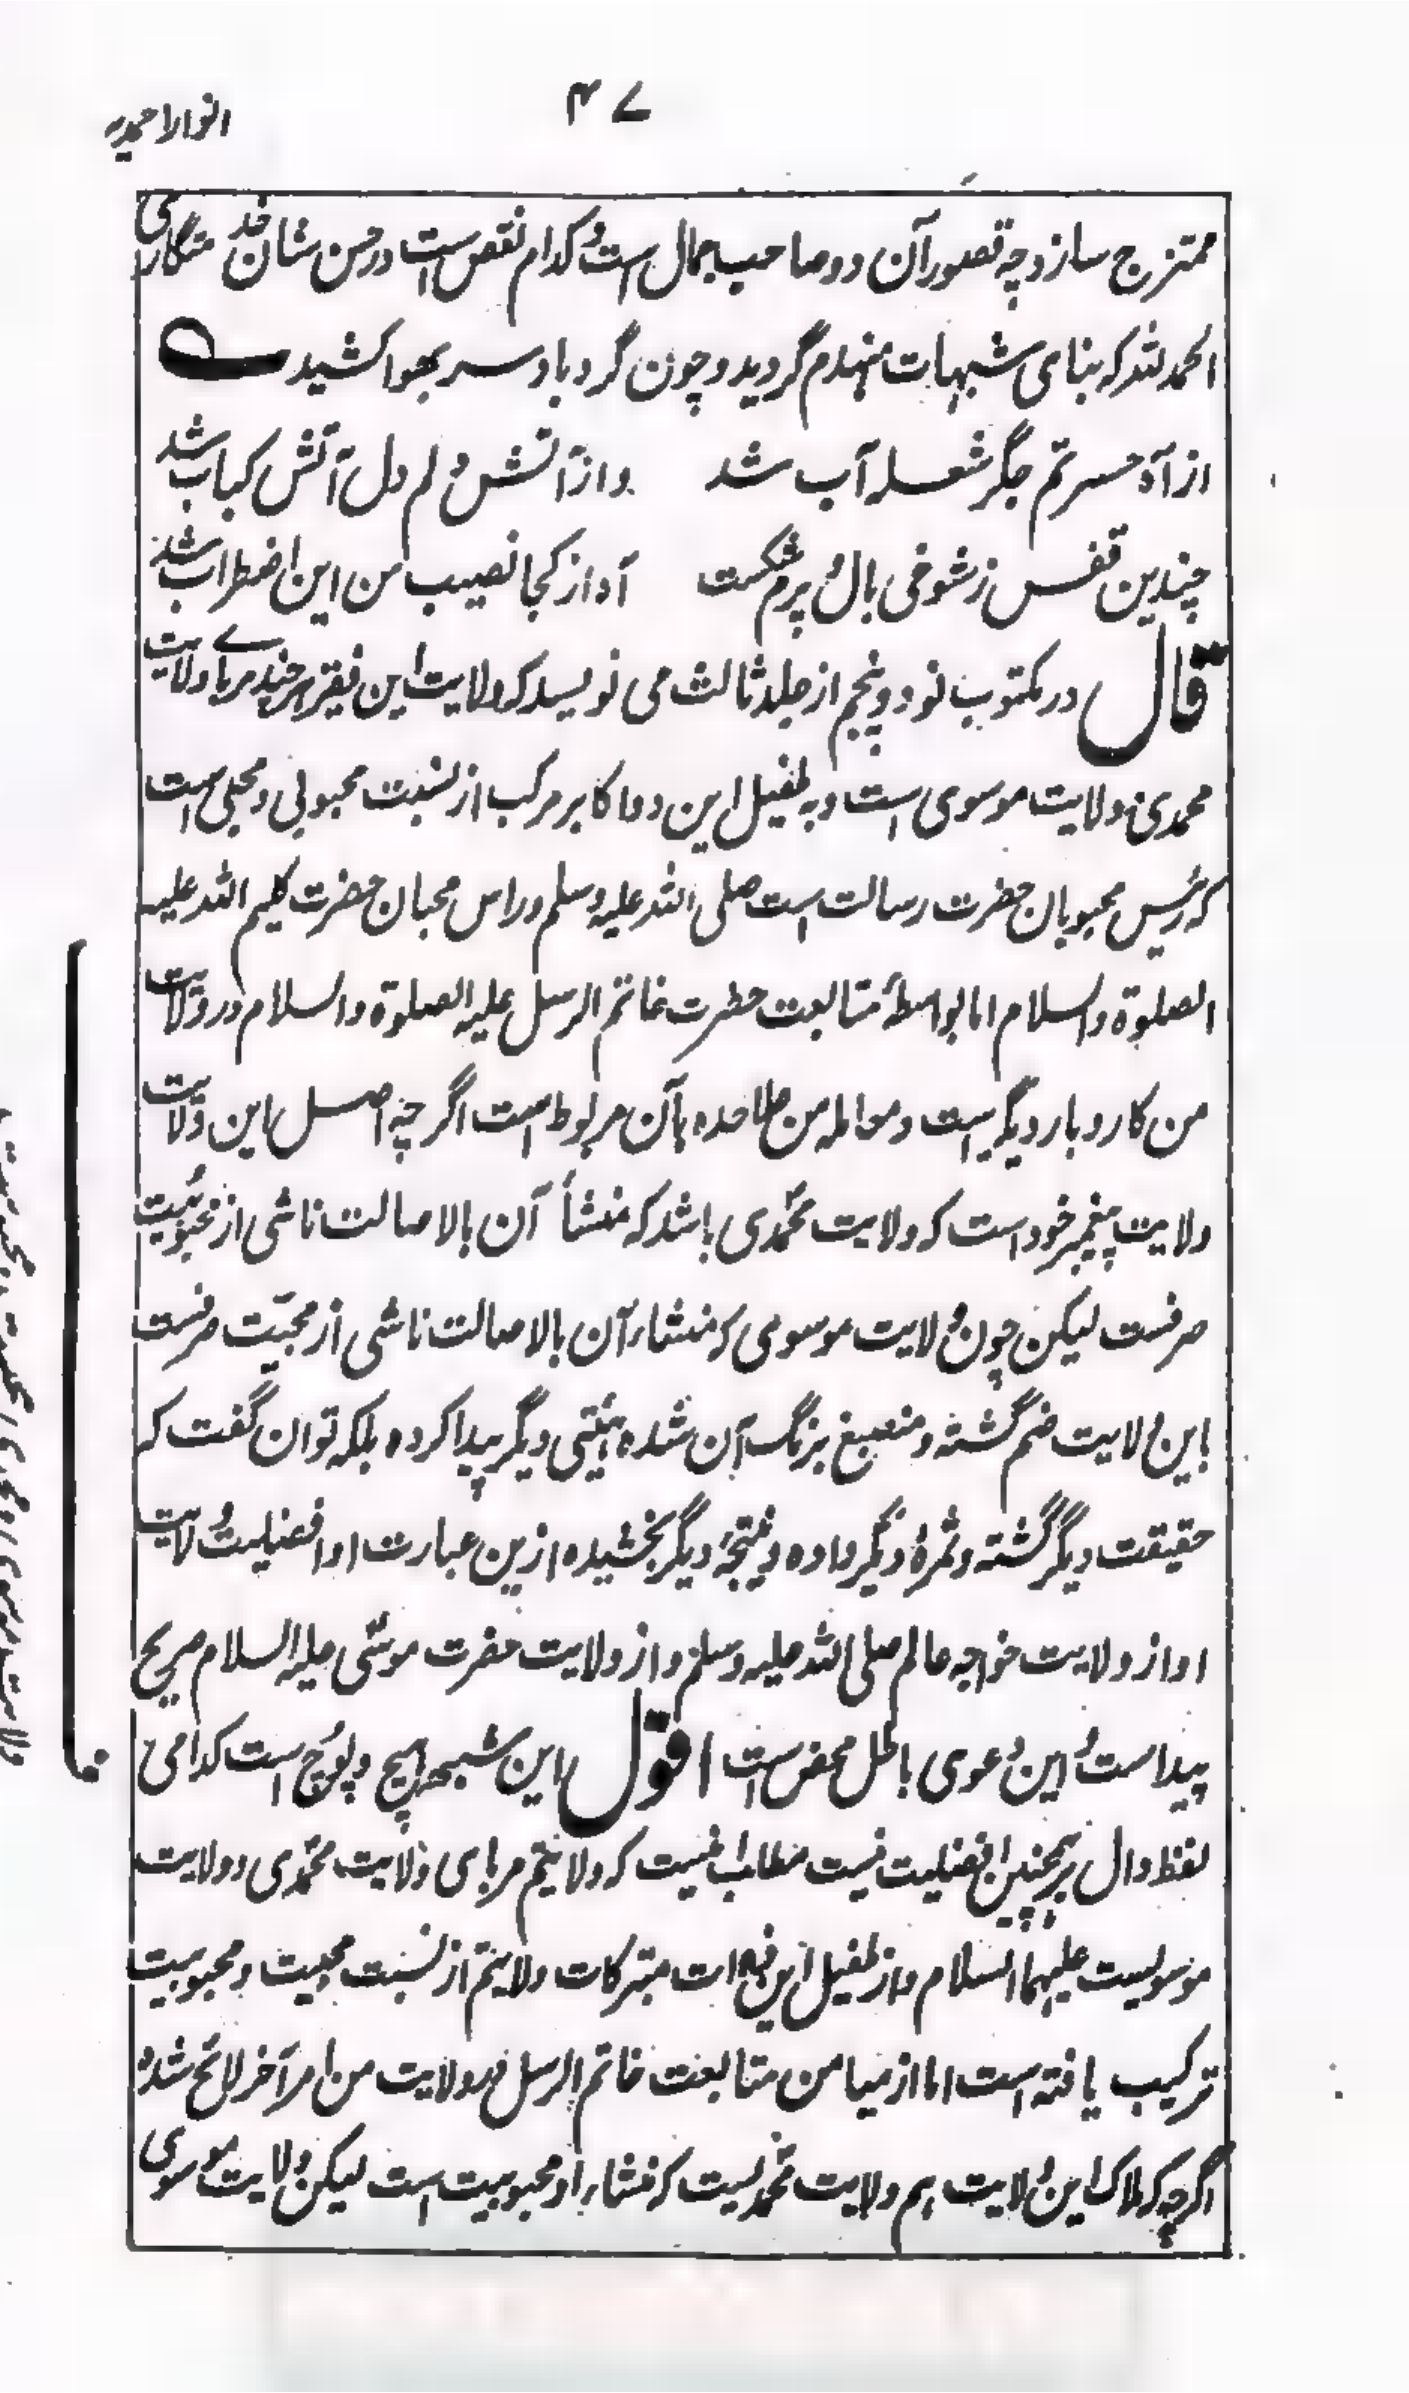 ۴۷
انوار احمدیه
ممتزج سازد چه قصور آن دو صاحب جمال است و کدام نقص است در حسن شان خدمتگاری
الحمد لله که بنای شبهات منهدم گردید و چون گردباد سر بهوا کشید
از آه حسرتم جگر شعله آب شد و از آتش دلم دل آتش کباب شد
چندین قفس ز شوخی بال و پرم شکست آه از کجا نصیب من این اضطراب شد
قال در مکتوب نود و پنجم از جلد ثالث می نویسد که ولایت این فقیر هر چند مربای ولایت
محمدی و ولایت موسوی است و به طفیل این دو اکابر مرکب از نسبت محبوبی و محبی است
که رئیس محبوبان حضرت رسالت است صلی الله علیه وسلم و راس محبان حضرت کلیم الله علیه
الصلوة والسلام اما بواسطهٔ متابعت حضرت خاتم الرسل علیه الصلوة والسلام در ولایت
من کار و بار دیگر است و معامله من علاحده بآن مربوط است اگر چه اصل این ولایت
ولایت پیغمبر خود است که ولایت محمدی باشد که منشأ آن بالاصالت ناشی از محبوبیت
صرفست لیکن چون ولایت موسوی که منشاء آن بالاصالت ناشی از محبت صرفست
باین ولایت ضم گشته و منصبغ برنگ آن شده هیئتی دیگر پیدا کرده بلکه توان گفت که
حقیقت دیگر گشته و ثمرهٔ دیگر داده و نتیجهٔ دیگر بخشیده ازین عبارت او افضلیت ولایت
او از ولایت خواجه عالم صلی الله علیه وسلم و از ولایت حضرت موسی علیه السلام صریح
پیدا است و این دعوی باطل محض است اقول این شبهه هیچ و پوچ است کدامی
لفظ دال بر همچنین افضلیت نیست مطلب اینست که ولایتم مربای ولایت محمدی و ولایت
موسویست علیهما السلام و از طفیل این ذوات متبرکات ولایتم از نسبت محبیت و محبوبیت
ترکیب یافته است اما از میامن متابعت خاتم الرسل در ولایت من امر آخر لائح شده
اگرچه که ملاک این ولایت هم ولایت محمدیست که منشاء او محبوبیت است لیکن ولایت موسوی